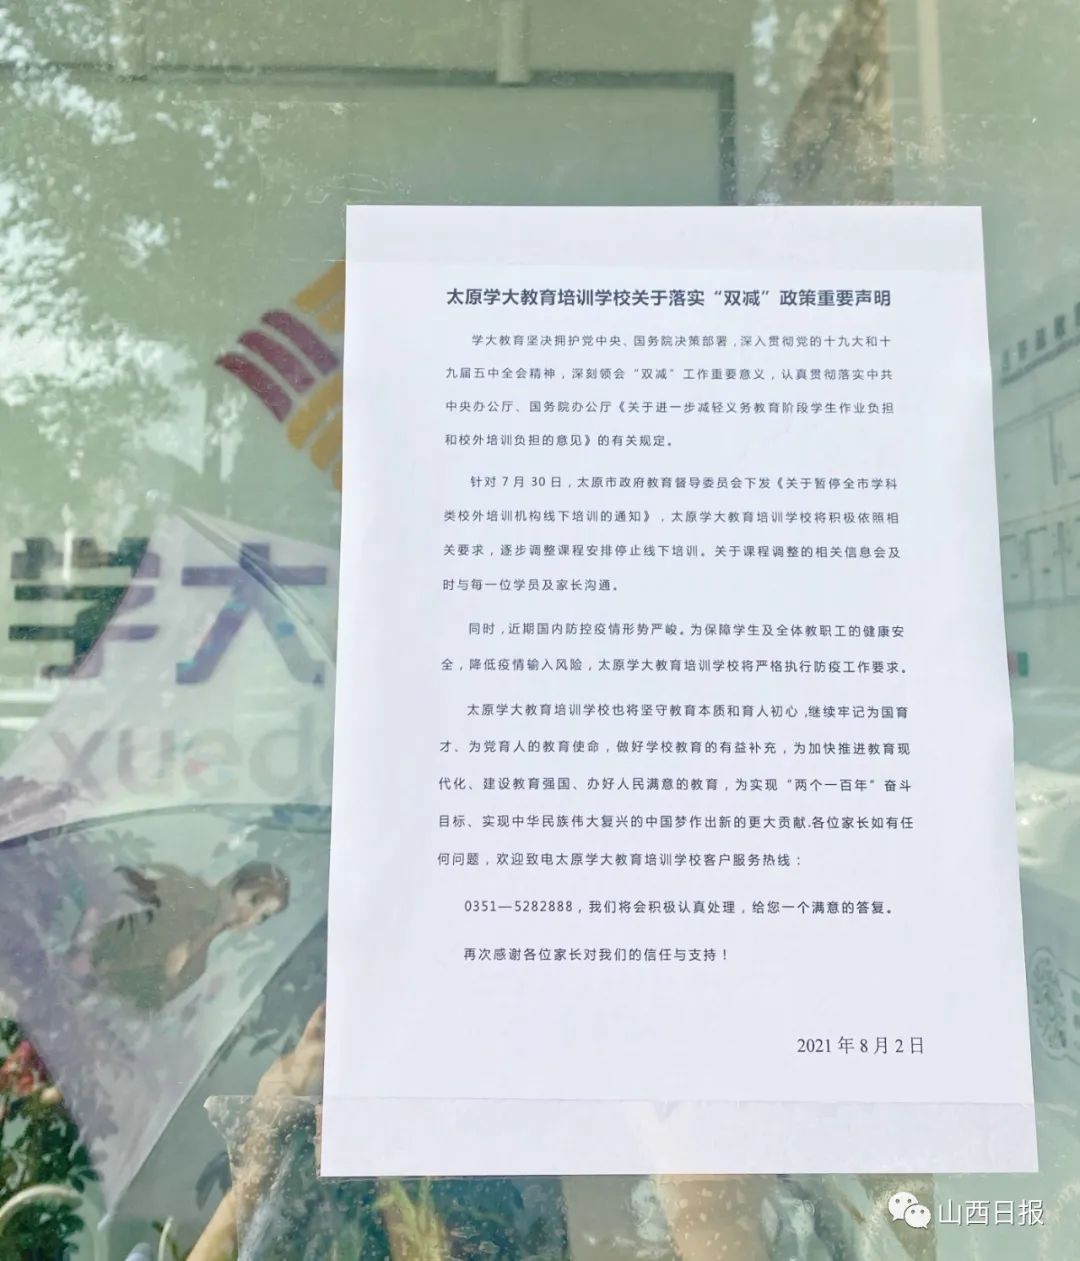 太原学大教育培训学校关于落实“双减”政策重要声明
学大教育坚决拥护党中央、国务院决策部署，深入贯彻党的十九大和十
九届五中全会精神，深刻领会“双减”工作重要意义，认真贯彻落实中共
中央办公厅、国务院办公厅《关于进一步减轻义务教育阶段学生作业负担
和校外培训负担的意见》的有关规定。
针对7月30日，太原市政府教育督导委员会下发《关于暂停全市学科
类校外培训机构线下培训的通知》，太原学大教育培训学校将积极依照相
关要求，逐步调整课程安排停止线下培训。关于课程调整的相关信息会及
时与每一位学员及家长沟通。
同时，近期国内防控疫情形势严峻。为保障学生及全体教职工的健康安
全，降低疫情输入风险，太原学大教育培训学校将严格执行防疫工作要求。
太原学大教育培训学校也将坚守教育本质和育人初心,继续牢记为国育
才、为党育人的教育使命，做好学校教育的有益补充，为加快推进教育现
代化、建设教育强国、办好人民满意的教育，为实现“两个一百年”奋斗
目标、实现中华民族伟大复兴的中国梦作出新的更大贡献.各位家长如有任
何问题，欢迎致电太原学大教育培训学校客户服务热线：
0351—5282888，我们将会积极认真处理，给您一个满意的答复。
再次感谢各位家长对我们的信任与支持！
2021年8月2日
学大
xueda
山西日报